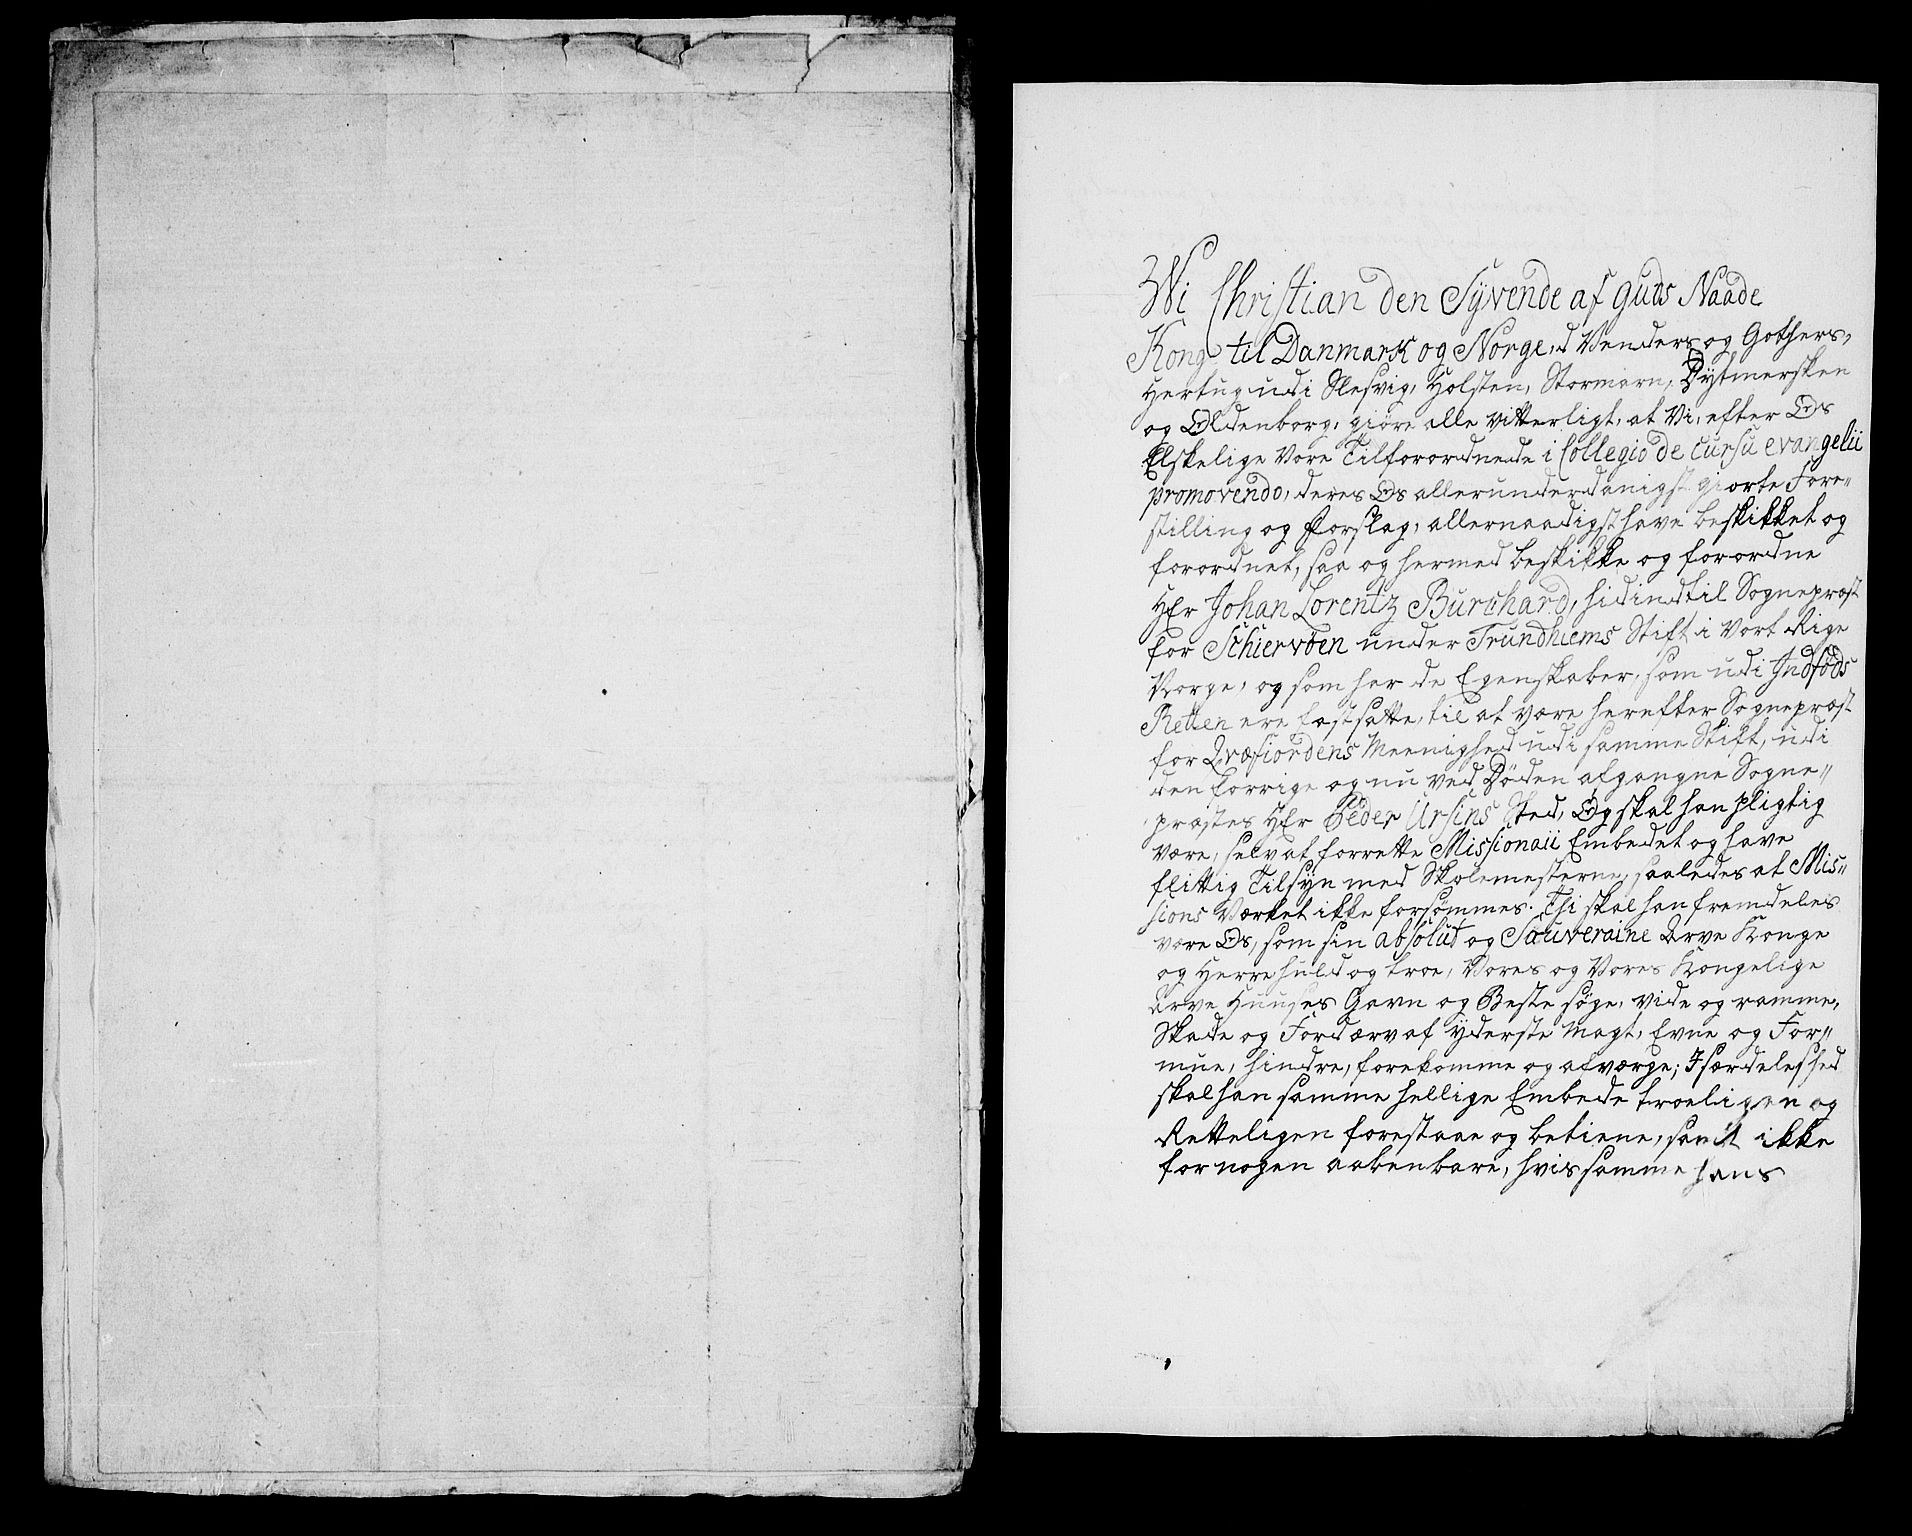 Wi Christian den Syvende af Guds Naade
Konge til Danmark og Norge, d Venders og Gothers,
Hertug udi Slesvig, Holsten, Stormarn, Dytmersken
og Oldenborg, giöre alle vitterligt, at Vi, efter Os
Elskelige Vore Tilforordnede i Collegio de cursu evangelii
promovendo, deres Os allerunderdanigst giorte Fore„
stilling og Forslag, allernaadigst have beskikket og
forordnet, saa og hermed beskikke og forordne
HEr Johan Lorentz Burchard, hidindtil Sognepræst
for Schiervöen under Trundhiems Stift i Vort Rige
Norge, og som har de Egenskaber, som udi Indföds
Retten ere fastsatte, til at være herefter Sognepræst
for Qvæfiordens Meenighed udi samme Stift, udi
den forrige og nu ved Döden afgangne Sogne„
præstes HEr Peder Ursins Sted, Og skal han pligtig
være, selv at forrette Missionaii Embedet og have
flittig Tilsyn med Skolemesterne, saaledes at Mis„
sions Værket ikke forsömmes. Thi skal han fremdeles
være Os, som sin absolut og Sauveraine Arve Konge
og Herre huld og troe, Vores og Vores Kongelige
Arve Huuses Gavn og Beste söge, vide og ramme,
Skade og Fordærv af yderste Magt, Evne og For„
mue, hindre, forekomme og afværge; Isærdeleshed
skal han samme hellige Embede troeligen og
Retteligen forestaae og betiene, samt ikke
for nogen aabenbare, hvis samme hans